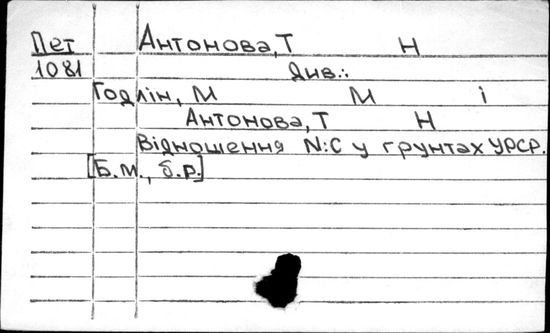 Пет Антонова, Т Н
1081 Див.:
Годлін, М М і
Антонова, Т Н
Відношення N:C у грунтах УРСР.
[Б.м., б.р.]